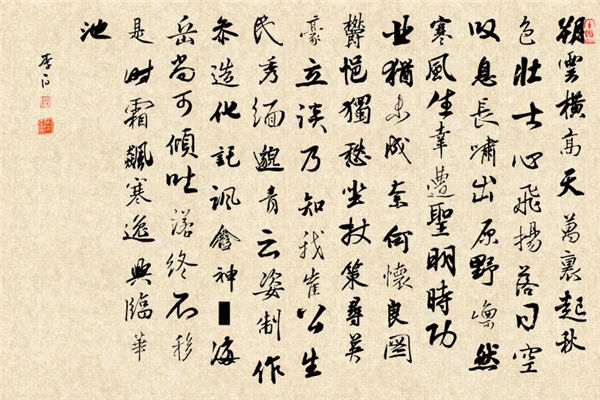 朔雲橫高天萬裏起秋
色壯士心飛揚落日空
叹息長嘯出原野凛然
寒風生幸遭聖明時功
业猶未成奈何懷良圖
鬱悒獨愁坐杖策尋英
豪立談乃知我崔公生
民秀緬邈青云姿制作
參造化記諷含神海
岳尚可傾吐諾終不移
是时霜飆寒逸興臨華
池
李白